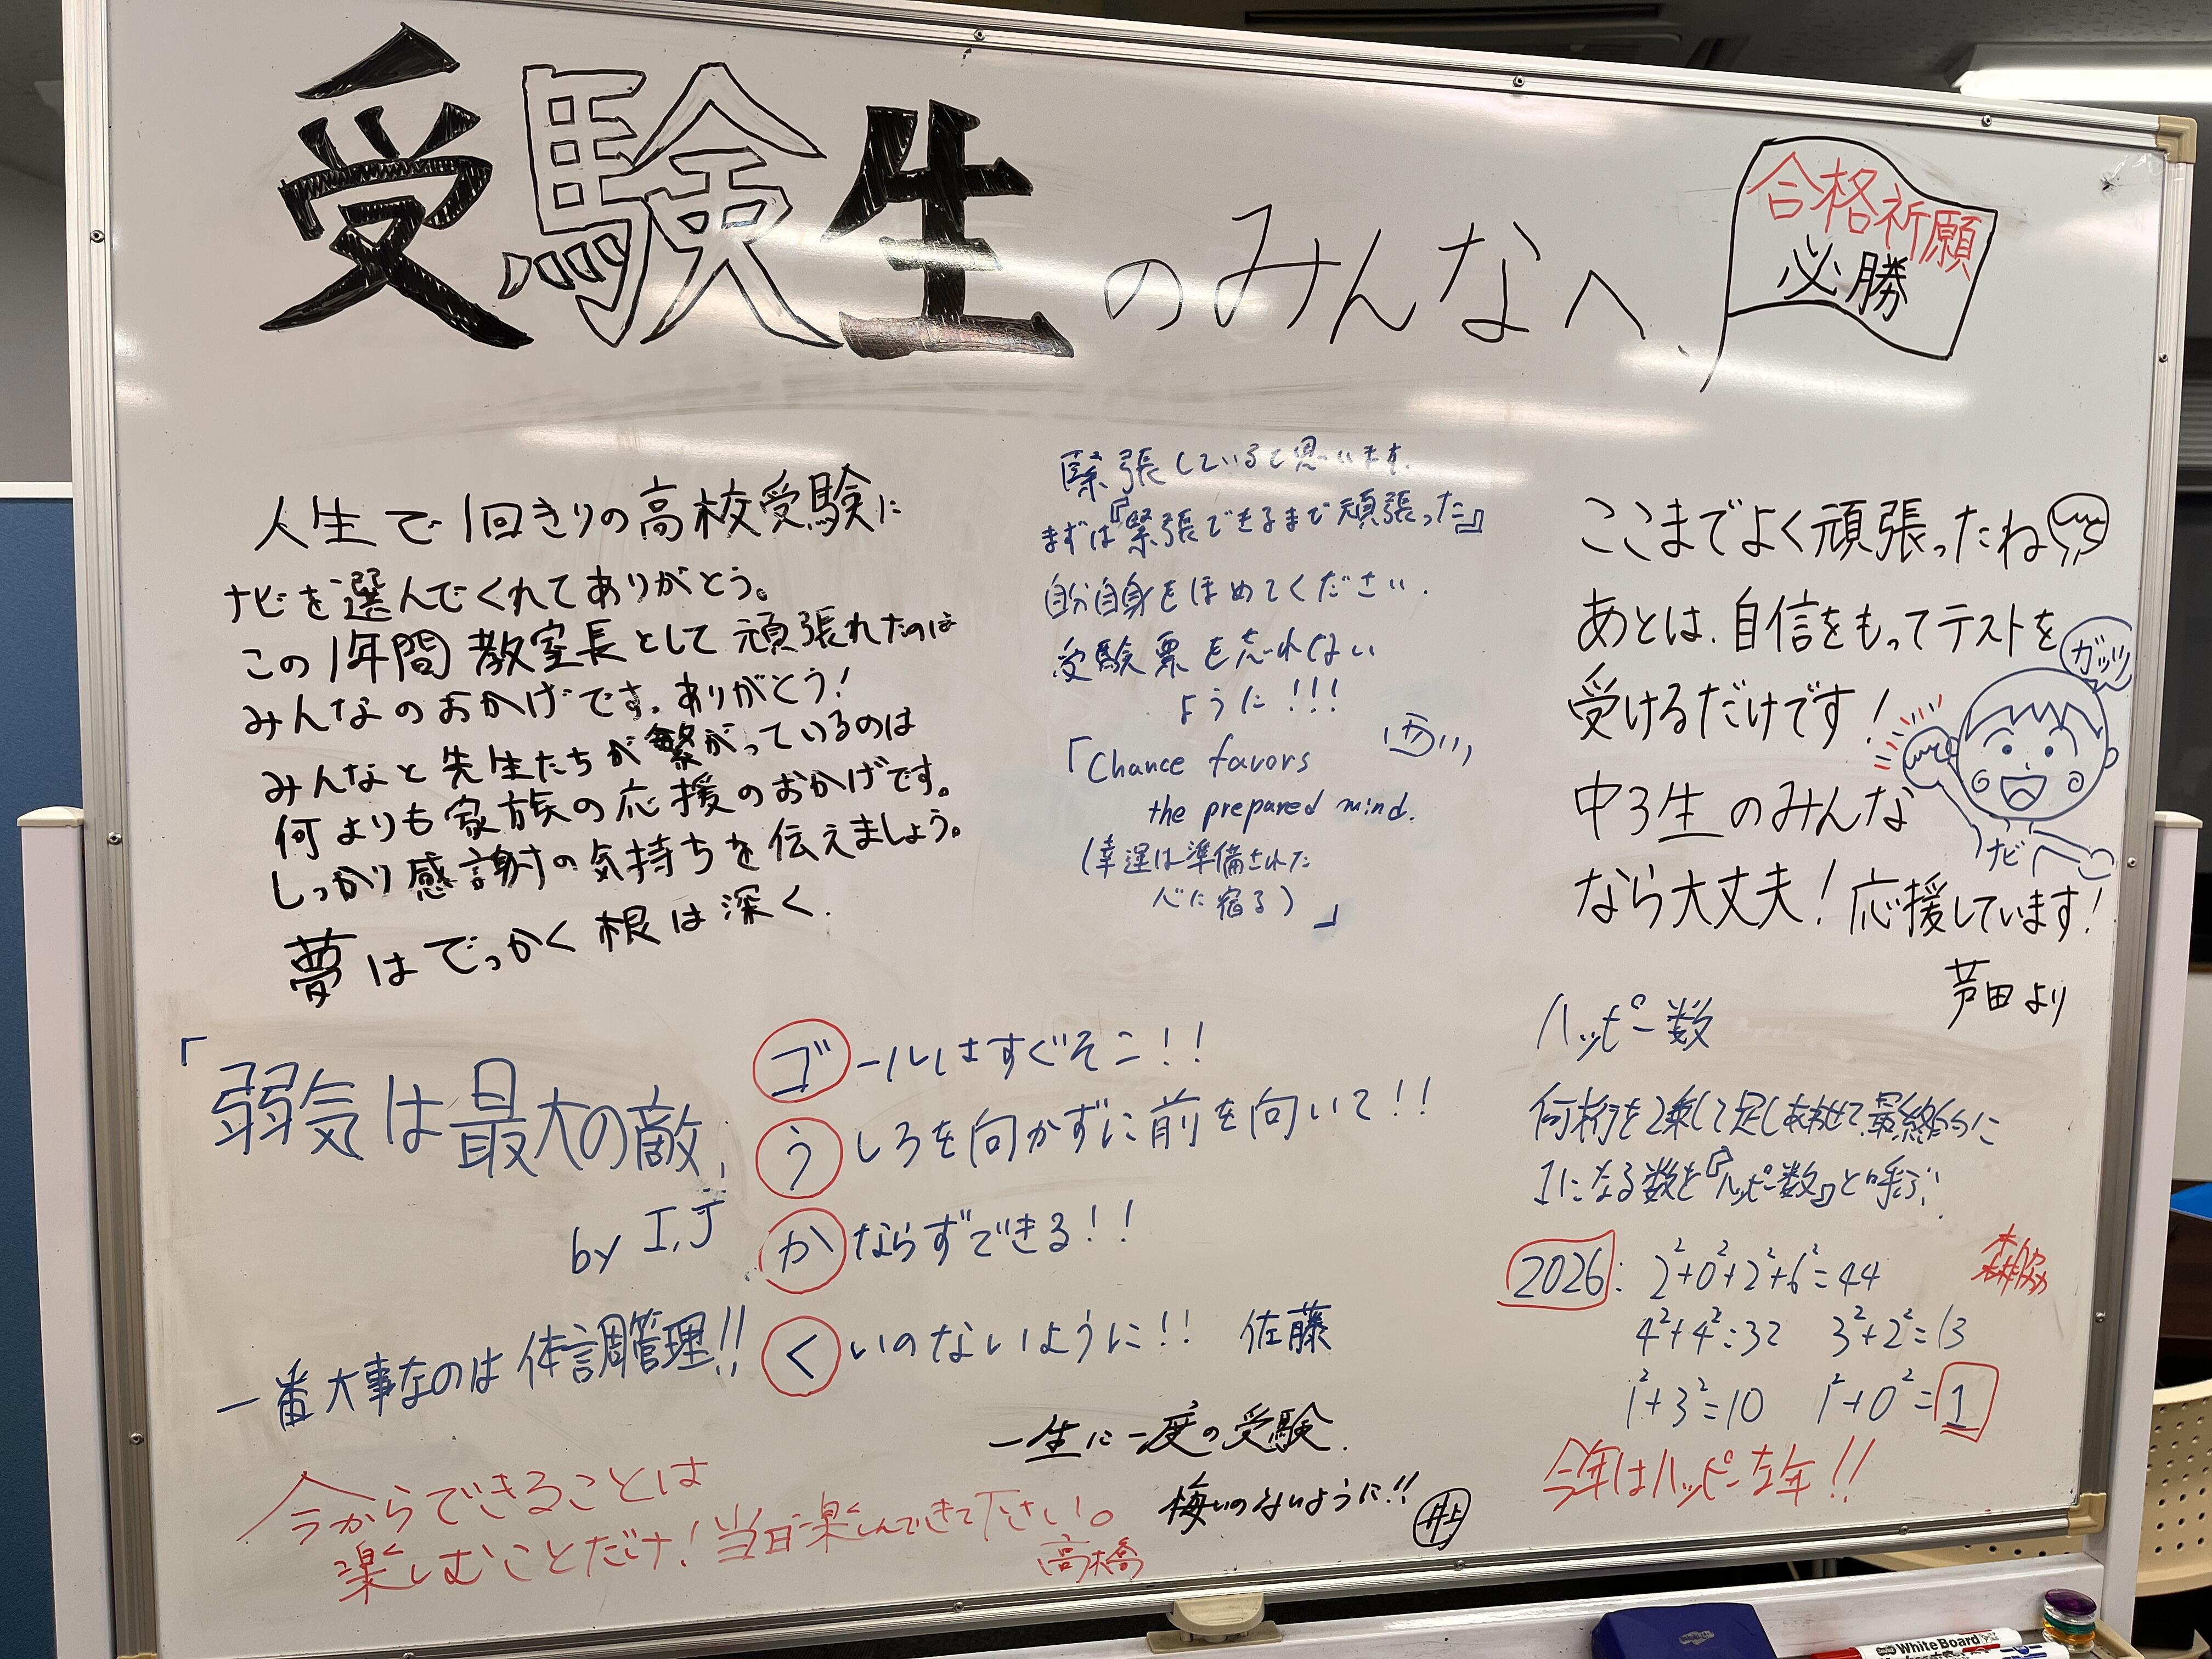 受験生のみんなへ、
合格祈願
必勝
人生で1回きりの高校受験に
ナビを選んでくれてありがとう。
この1年間教室長として頑張れたのは
みんなのおかげです。ありがとう!
みんなと先生たちが繋がっているのは
何よりも家族の応援のおかげです。
しっかり感謝の気持ちを伝えましょう。
夢はでっかく根は深く.
緊張していると思います.
まずは『緊張できるまで頑張った』
自分自身をほめてください.
受験票を忘れない
ように!!!
西い
「Chance favors
the prepared mind.
(幸運は準備された
心に宿る)」
ここまでよく頑張ったね
あとは、自信をもってテストを
受けるだけです!
中3生のみんな
なら大丈夫!応援しています!
芦田より
ガッツ
ナビ
「弱気は最大の敵」
by I.J
一番大事なのは体調管理!!
ゴールはすぐそこ!!
うしろを向かずに前を向いて!!
かならずできる!!
くいのないように!! 佐藤
一生に一度の受験.
悔いのないように!! 井上
今からできることは
楽しむことだけ!当日楽しんできて下さい。
高橋
ハッピー数
何桁を2乗して足しあわせて、最終的に
1になる数を『ハッピー数』と呼ぶ.
2026: 2²+0²+2²+6²=44
4²+4²=32 3²+2²=13
1²+3²=10 1²+0²=1
森脇
今年はハッピーな年!!
White Board